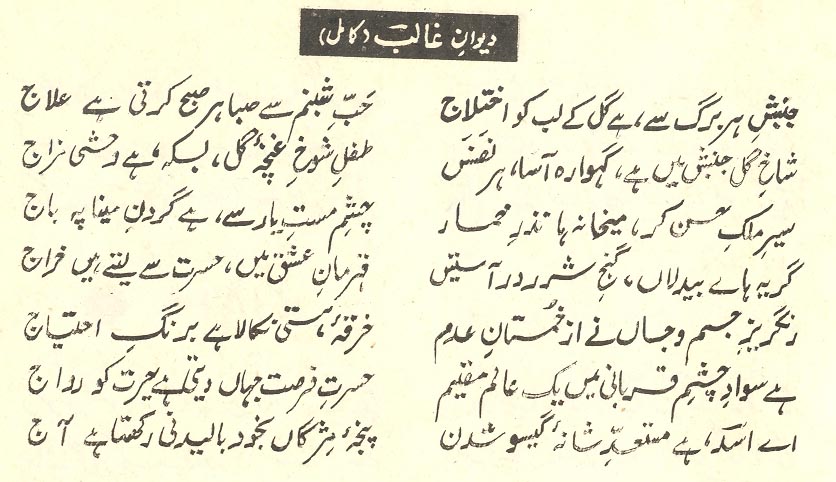 دیوانِ غالب (کامل)
جنبشِ ہر برگ سے، ہے گل کے لب کو اختلاج حَبِّ شبنم سے صبا ہر صبح کرتی ہے علاج
شاخِ گل جنبش میں ہے، گہوارہ آسا، ہر نفَس طفلِ شوخِ غنچۂ گل، بسکہ، ہے وحشی مزاج
سیرِ ملکِ حسن کر، میخانہ ہا نذرِ خمار چشمِ مستِ یار سے، ہے گردنِ مینا پہ باج
گریہ ہاے بیدلاں، گنجِ شرر در آستیں قہرمانِ عشق میں، حسرت سے لیتے ہیں خراج
رنگریزِ جسم و جاں نے از خُمستانِ عدم خرقۂ ہستی نکالا ہے برنگِ احتیاج
ہے سوادِ چشمِ قربانی میں یک عالم مقیم حسرتِ فرصت جہاں دیتی ہے حیرت کو رواج
اے اسد، ہے مستعدِّ شانۂ گیسو شدن پنجۂ مژگاں بخود بالیدنی رکھتا ہے آج